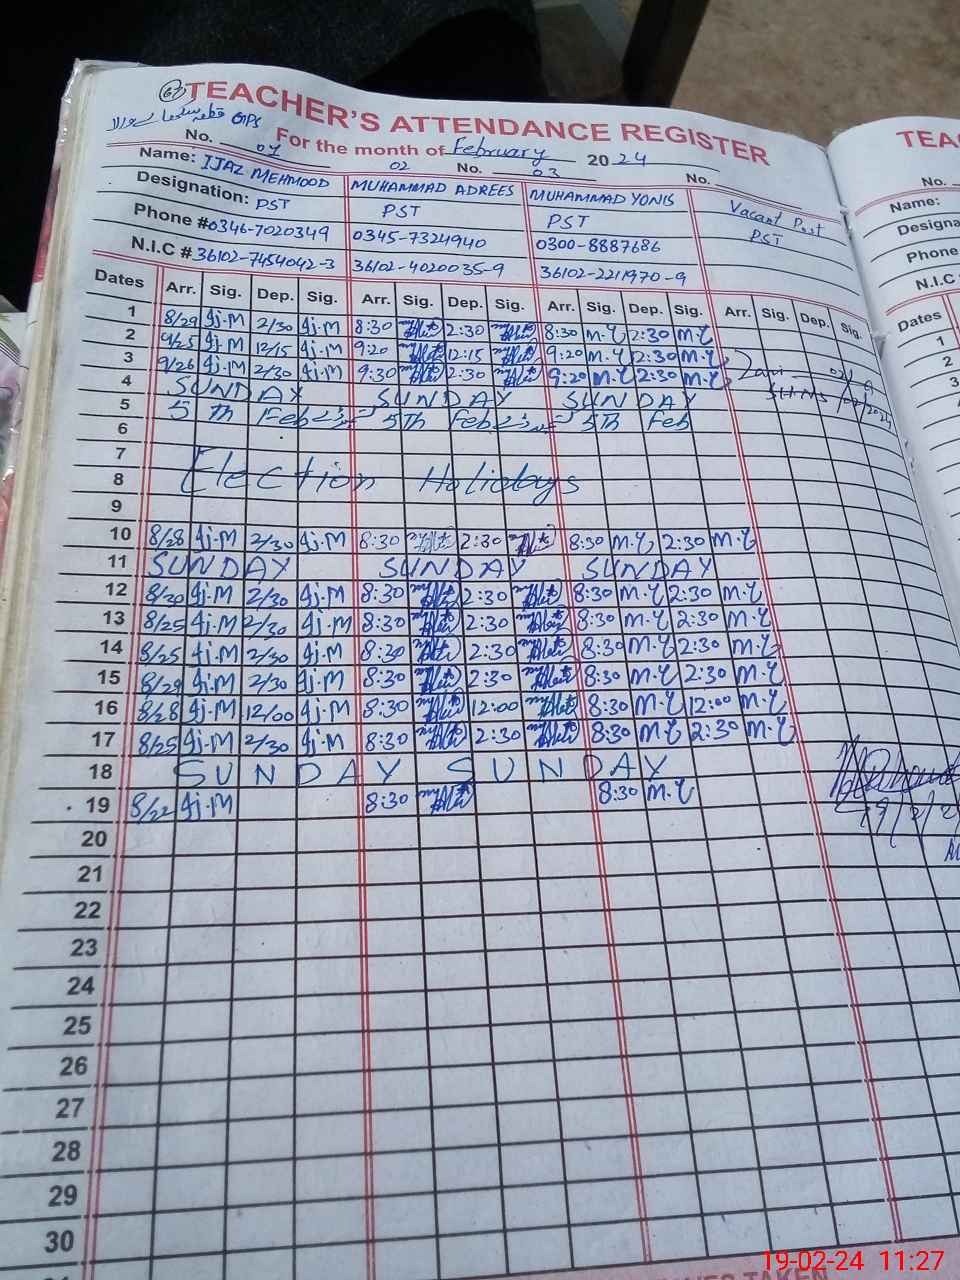 67 TEACHER'S ATTENDANCE REGISTER TEA
GPS
For the month of February 2024
No. 01 02 No. 03 No. No.
Name: IJAZ MEHMOOD MUHAMMAD ADREES MUHAMMAD YONIS Vacant Post Name:
Designation: PST PST PST PST Designa
Phone # 0346-7020349 0345-7324940 0300-8887686 Phone
N.I.C # 36102-7454042-3 36102-4020035-9 36102-2211970-9 N.I.C #
Dates Arr. Sig. Dep. Sig. Arr. Sig. Dep. Sig. Arr. Sig. Dep. Sig. Arr. Sig. Dep. Sig. Dates
1 8/29 Ij.M 2/30 Ij.M 8:30 2:30 8:30 M.Y 2:30 M.Y 1
2 9/25 Ij.M 12/15 Ij.M 9:20 12:15 9:20 M.Y 12:30 M.Y 2
3 9/26 Ij.M 2/30 Ij.M 9:30 2:30 9:20 M.Y 2:30 M.Y 3
4 SUNDAY SUNDAY SUNDAY 4
5 5th Feb 5th Feb 5th Feb 5
6
7
8 Election Holidays
9
10 8/28 Ij.M 2/30 Ij.M 8:30 2:30 8:30 M.Y 2:30 M.Y
11 SUNDAY SUNDAY SUNDAY
12 8/20 Ij.M 2/30 Ij.M 8:30 2:30 8:30 M.Y 2:30 M.Y
13 8/25 Ij.M 2/30 Ij.M 8:30 2:30 8:30 M.Y 2:30 M.Y
14 8/25 Ij.M 2/30 Ij.M 8:30 2:30 8:30 M.Y 2:30 M.Y
15 8/29 Ij.M 2/30 Ij.M 8:30 2:30 8:30 M.Y 2:30 M.Y
16 8/28 Ij.M 12/00 Ij.M 8:30 12:00 8:30 M.Y 12:00 M.Y
17 8/25 Ij.M 2/30 Ij.M 8:30 2:30 8:30 M.Y 2:30 M.Y
18 SUNDAY SUNDAY
19 8/22 Ij.M 8:30 8:30 M.Y
20
21
22
23
24
25
26
27
28
29
30
19-02-24 11:27